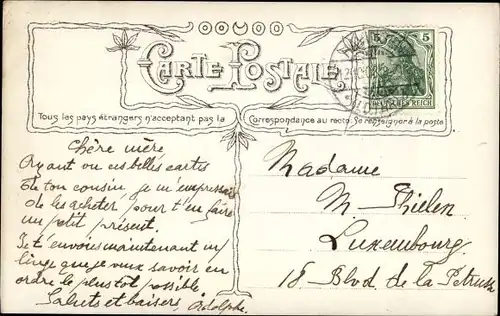 CARTE POSTALE
5 5
DEUTSCHES REICH
Tous les pays étrangers n'acceptant pas la Correspondance au recto. Se renseigner à la poste
Chère mère
Ayant vu ces belles cartes
de ton cousin, je m'empresse
de les acheter pour t'en faire
un petit présent.
Je t'envoie maintenant un
linge que je veux savoir en
ordre le plus tôt possible
Saluts et baisers, Adolphe.
Madame
M. Thielen
Luxembourg
18. Blvd. de la Petrusse